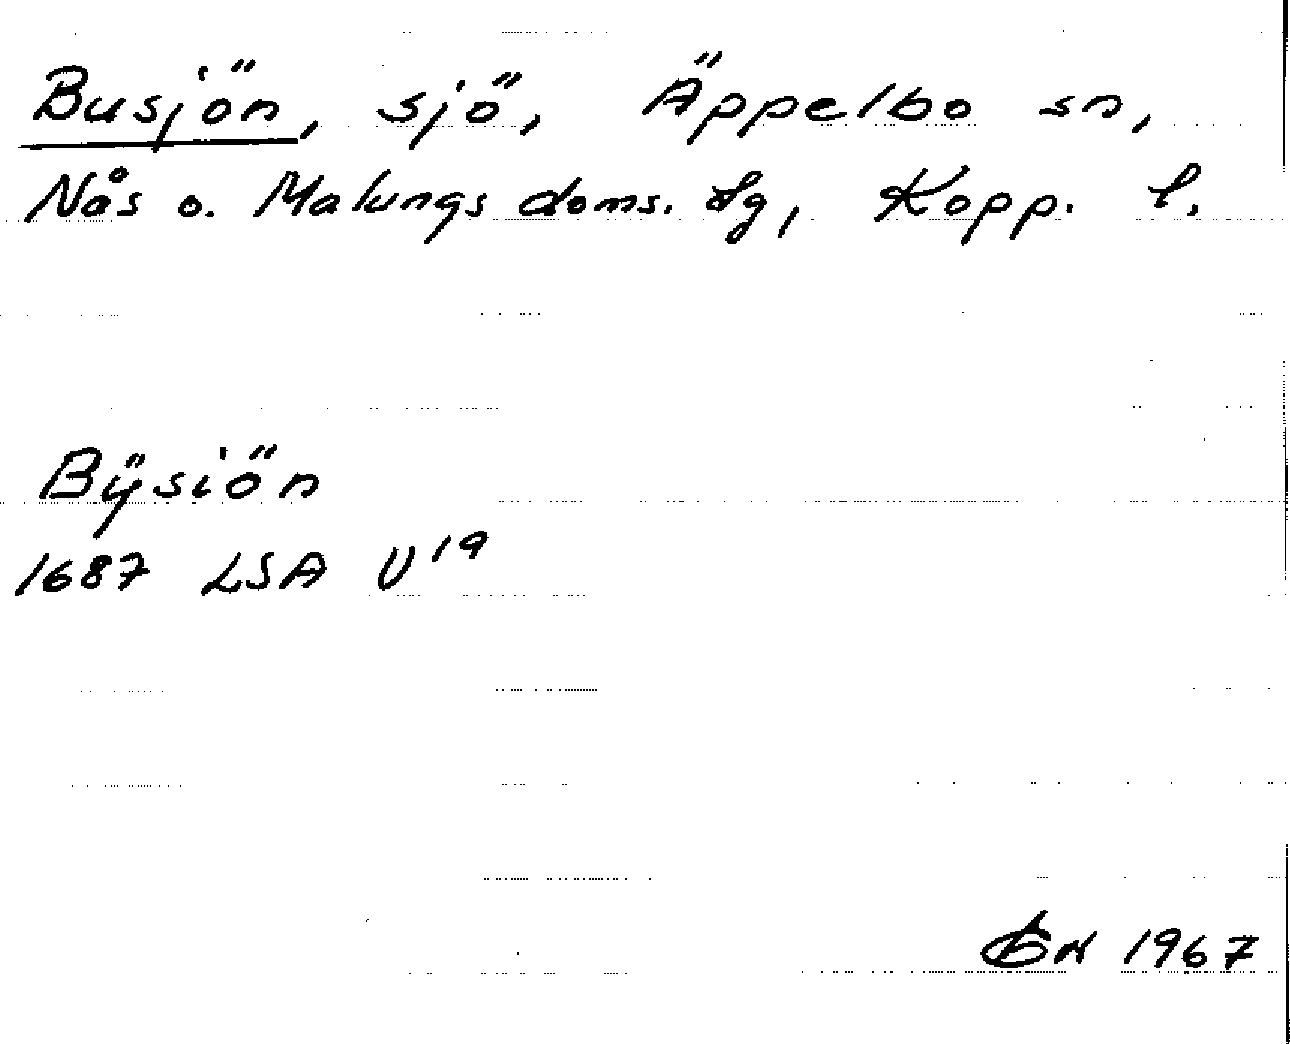 Busjön, sjö, Äppelbo sn,
Nås o. Malungs doms. dg, Kopp. l.
Bÿsiön
1687 LSA U¹⁹
1967